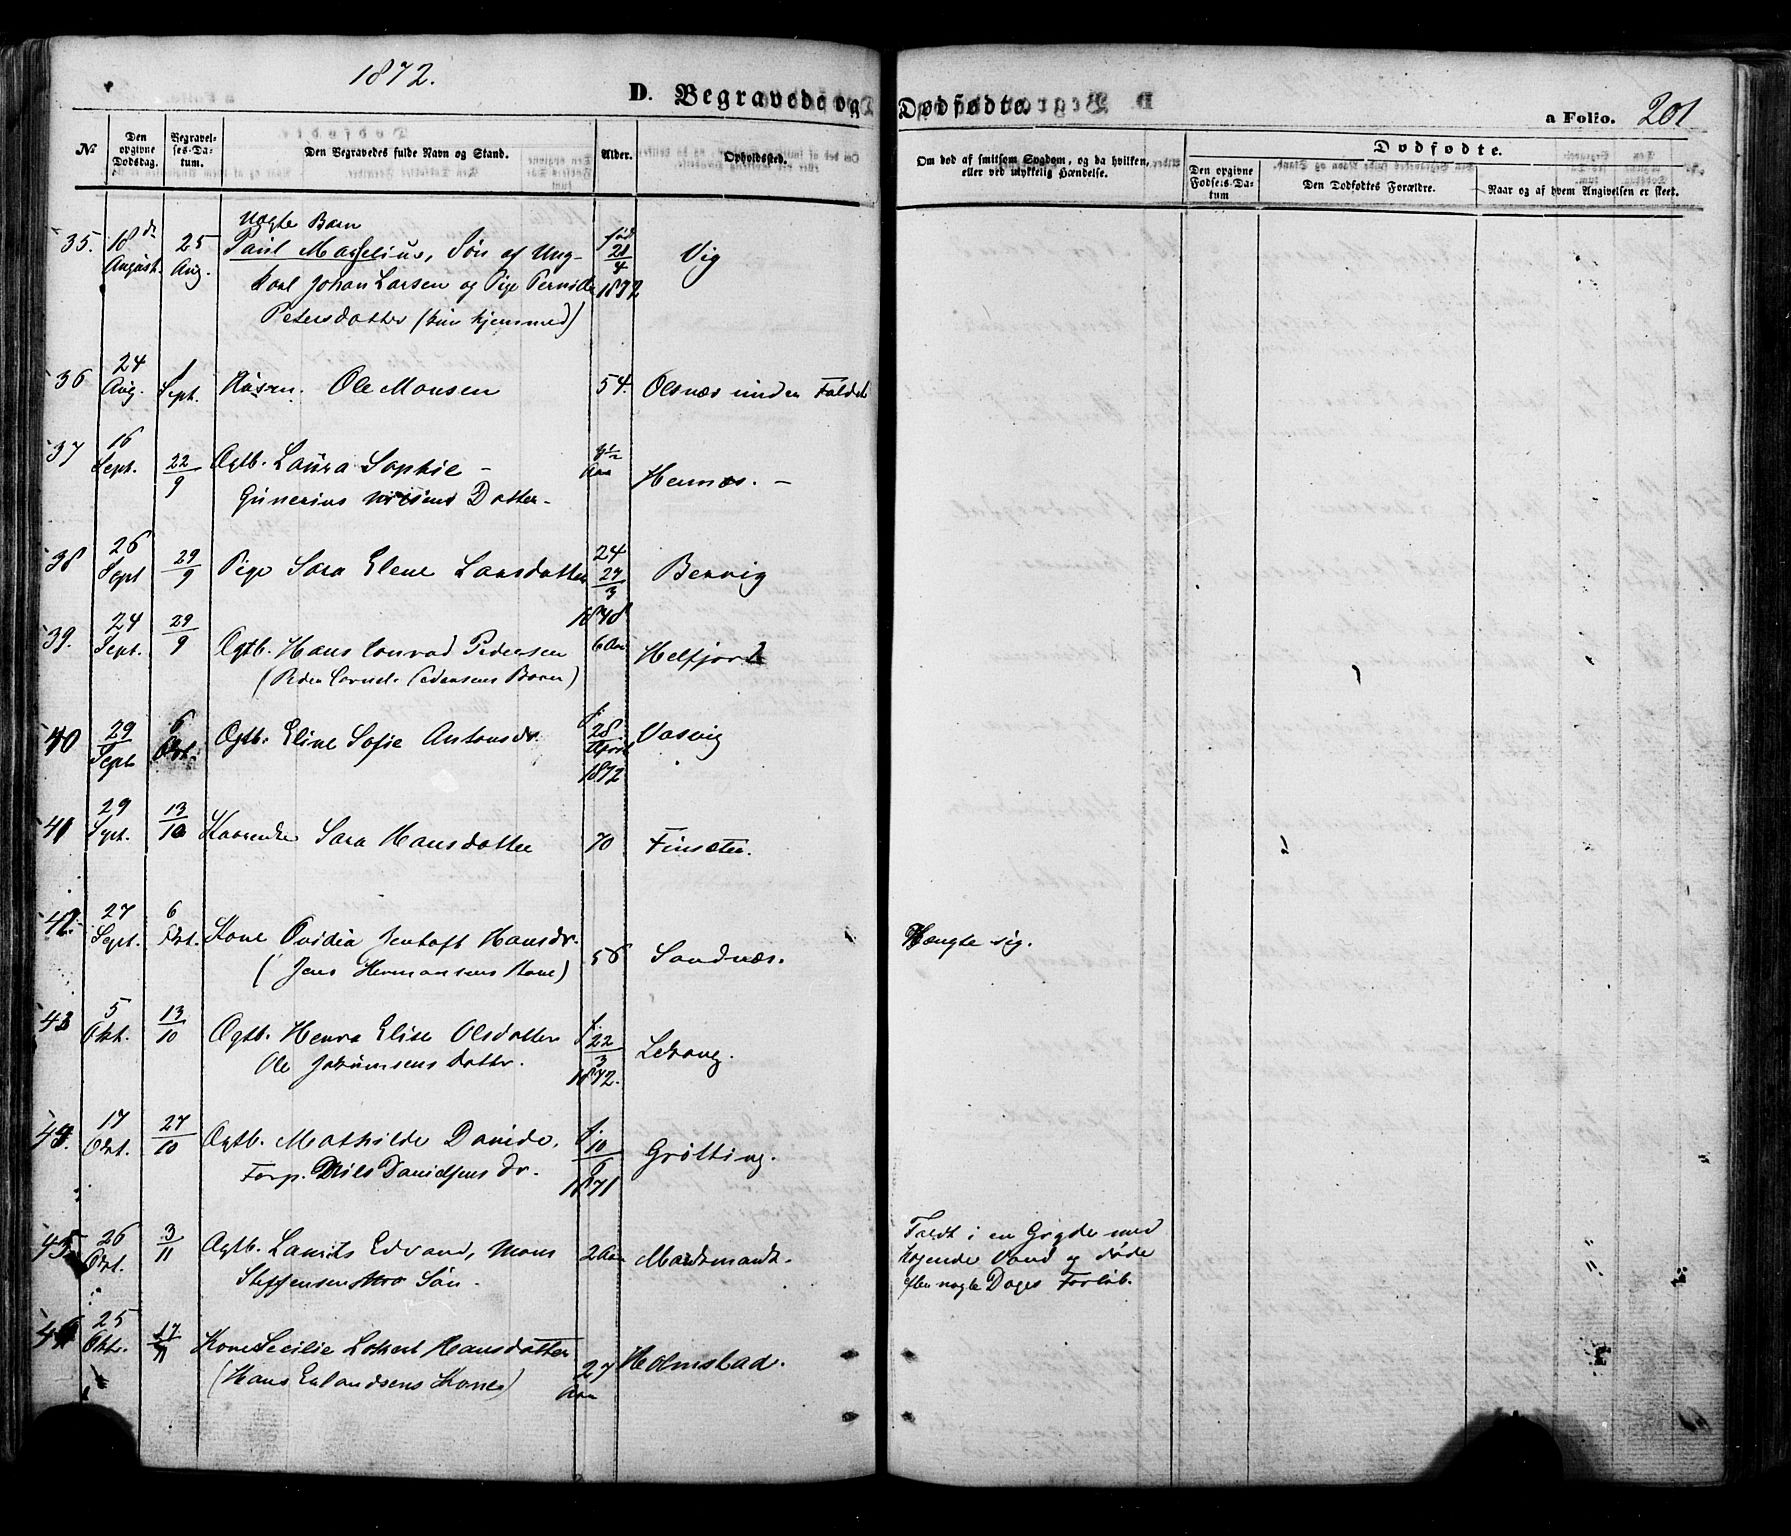 1872.
D. Begravede og Dødfødte.
a Folio. 201
No
Den opgivne Dødsdag.
Begravelses-Datum.
Den Begravedes fulde Navn og Stand.
Alder.
Opholdssted.
Om død af smitsom Sygdom, og da hvilken, eller ved ulykkelig Hændelse.
Dødfødte.
Den opgivne Fødsels-Datum
Den Dødfødtes Forældre.
Naar og af hvem Angivelsen er skeet.
35. 18de August. 25 Aug. Uægte Barn
Paul Marselius, Søn af Ung-
karl Johan Larsen og Pige Pernille
Petersdatter (hjemmed)
fød 21/4 1872 Vig
36 24 Aug. 1 Sept. Husm. Ole Monsen 54. Olsnæs under Foldet
37 16 Sept. 22/9 Ægtb. Laura Sophie -
Gunerius Datter - Aar Hennæs. -
38 26 Sept 29/9 Pige Sara Elene Larsdatter 24 27/3 1848 Bervig
39. 24 Sept. 29/9 Ægtb. Hans Conrad Pedersen 6 Aar Helfjord
(Peder Cornel. Pedersens Barn)
40 29 Sept 6 Okt. Ægtb. Eline Sofie Antonsdr. f. 28 April 1872 Vasvig
41 29 Sept. 13/10 Sara Hansdatter 70 Finsæter.
42. 27 Sept. 6 Okt. Kone Ovidia Jentoft Hansdr. 56 Sandnæs. Hængte sig.
(Jens Hermansens Kone)
43 5 Okt. 13/10 Ægtb. Henra Elise Olsdatter f. 22/3 1872. Lekang.
Ole Jokumsens Datter.
44. 17 Okt. 27/10 Ægtb. Mathilde Davida, f. 10/6 1871 Grøtting.
Forp. Nils Davidsens Dr.
45. 26 Okt. 3/11 Ægtb. Laurits Edvard, Mons 2 Aar Mardsmandt.
Steffensen Søn.
Faldt i en Gryde med
kogende Vand og døde
efter nogle Dages Forløb.
46 25 Okt. 17/11 Kone Cecilie Lokert Hansdatter 27 Aar Holmstad.
(Hans Erlandsens Kone)